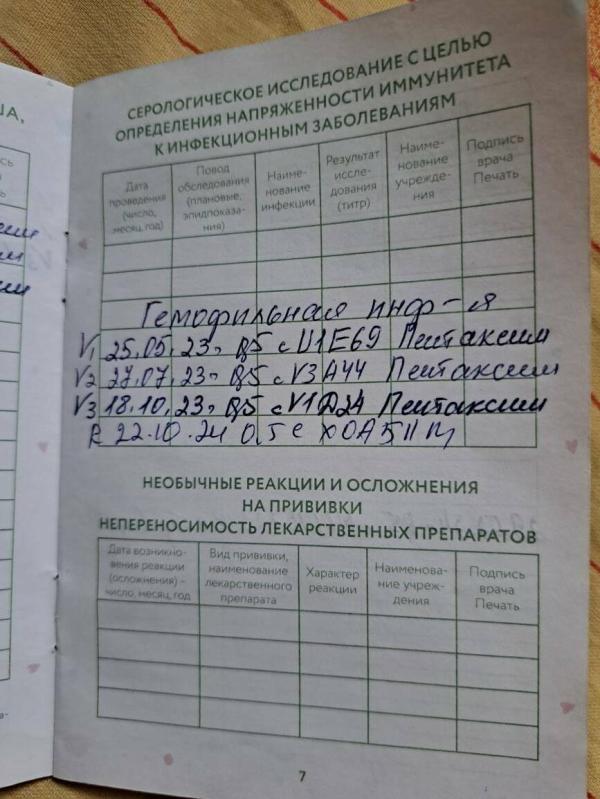 ША,
СЕРОЛОГИЧЕСКОЕ ИССЛЕДОВАНИЕ С ЦЕЛЬЮ
ОПРЕДЕЛЕНИЯ НАПРЯЖЕННОСТИ ИММУНИТЕТА
К ИНФЕКЦИОННЫМ ЗАБОЛЕВАНИЯМ
Дата проведения (число, месяц, год)
Повод обследования (плановые, эпидпоказания)
Наиме-нование инфекции
Результат иссле-дования (титр)
Наиме-нование учрежде-ния
Подпись врача Печать
Гемофильная инф-я
V1 25.05.23г 0,5 с U1E69 Пентаксим
V2 27.07.23г 0,5 с V3A44 Пентаксим
V3 18.10.23г 0,5 с V1D24 Пентаксим
R 22.10.24 0,5 с
НЕОБЫЧНЫЕ РЕАКЦИИ И ОСЛОЖНЕНИЯ
НА ПРИВИВКИ
НЕПЕРЕНОСИМОСТЬ ЛЕКАРСТВЕННЫХ ПРЕПАРАТОВ
Дата возникно-вения реакции (осложнения) – число, месяц, год
Вид прививки, наименование лекарственного препарата
Характер реакции
Наименова-ние учреж-дения
Подпись врача Печать
7